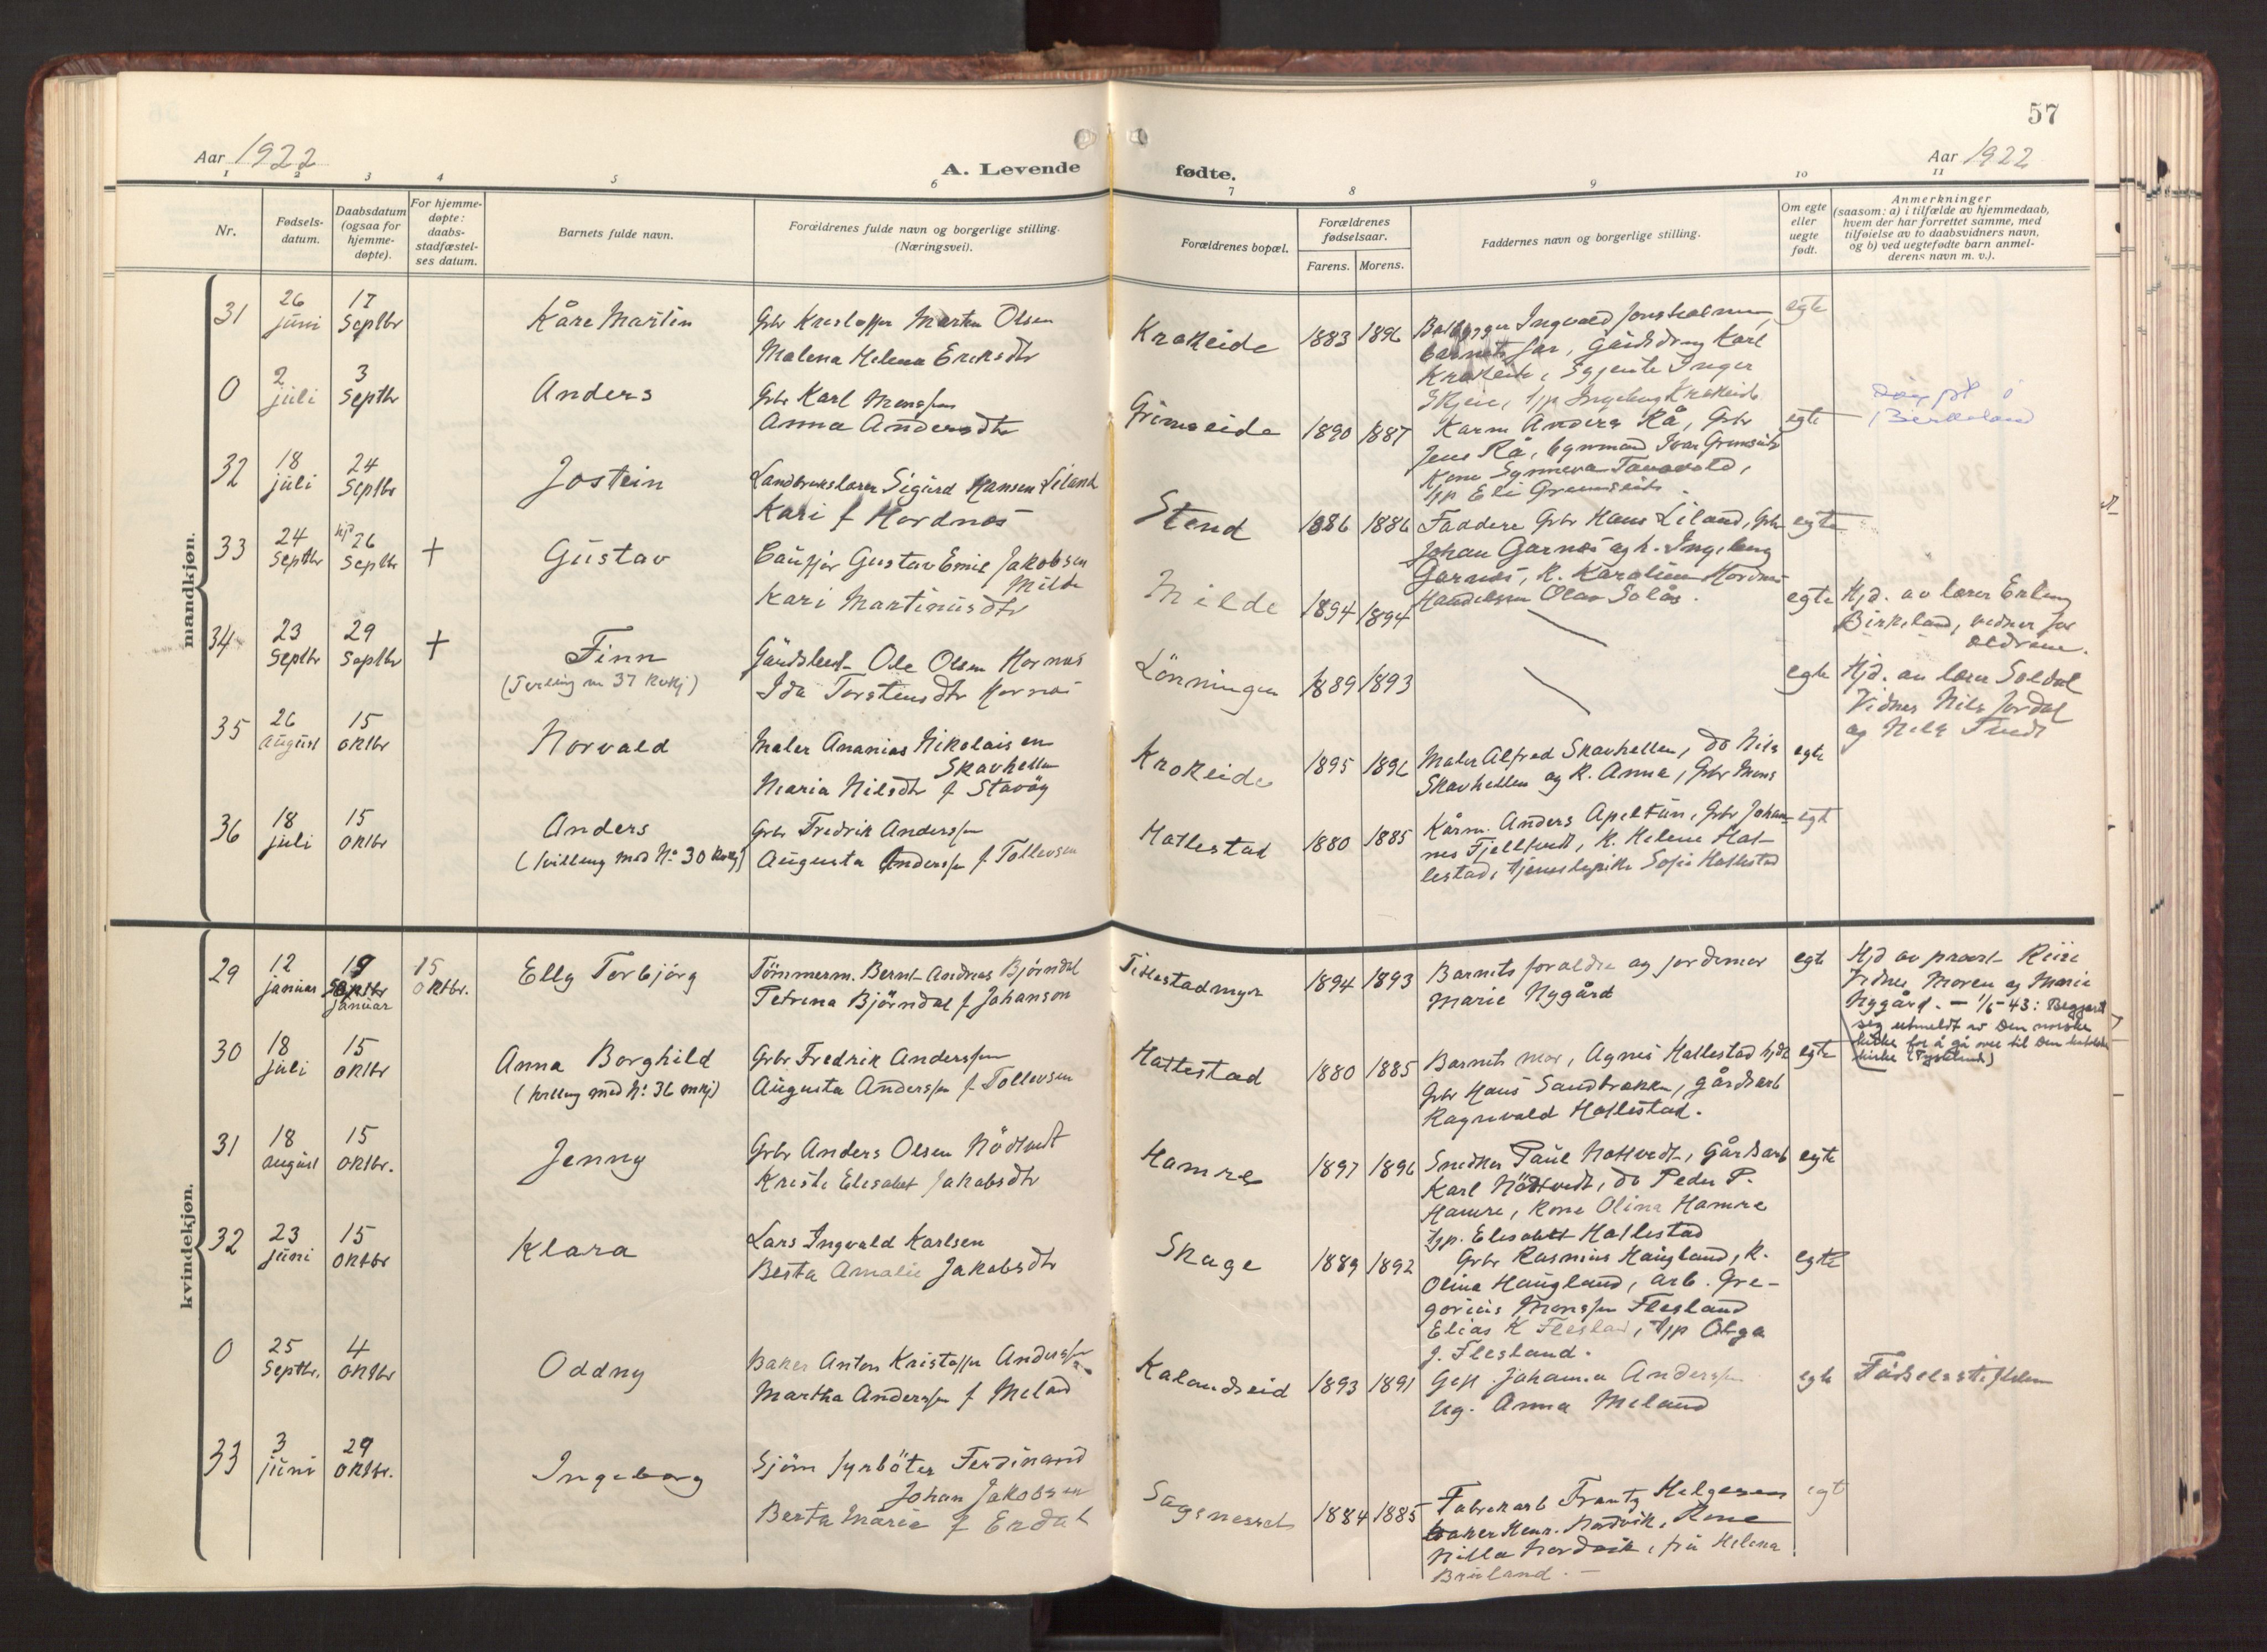 57
Aar 1922
A. Levende
fødte.
Aar 1922
1 2 3 4 5 6 7 8 9 10 11
Nr.
Fødsels-
datum.
Daabsdatum
(ogsaa for
hjemme-
døpte).
For hjemme-
døpte:
daabs-
stadfæstel-
ses datum.
Barnets fulde navn.
Forældrenes fulde navn og borgerlige stilling.
(Næringsvei).
Forældrenes bopæl.
Forældrenes
fødselsaar.
Farens. Morens.
Faddernes navn og borgerlige stilling.
Om egte
eller
uegte
født.
Anmerkninger
(saasom: a) i tilfælde av hjemmedaab,
hvem der har forrettet samme, med
tilføielse av to daabsvidners navn,
og b) ved uegtefødte barn anmel-
derens navn m. v.).
mandkjøn.
31
26
juni
17
Septbr
Kåre Martin
Gbr Kristoffer Martin Olsen
Malena Helena Eriksdtr
Krokeide
1883 1896
Ingvald
barnets far, Karl
Krokeide, Inger
Skjeie, t/p Ingeborg Krokeide
egte
0
2
juli
3
Septbr
Anders
Gbr Karl Monssen
Anna Andersdtr
Grimseide
1890 1887
Karm Anders Rå, Gbr
Jens Rå, Ivar Grimseide
Kone Synneva
t/p Eli Grimseide
egte
Birkeland
32
18
juli
24
Septbr
Jostein
Landbrukslærer Sigurd Hansen Liland
Kari f Hordnes
Stend
1886 1886
Faddere Gbr Hans Liland, Gbr
Johan Garnes og h. Ingeborg
Garnes, K. Karoline Hordnes
Olav Solås.
egte
33
24
Septbr
hjd 26
Septbr
+
Gustav
Gustav Emil Jakobsen
Milde
Kari Martinusdtr
Milde
1894 1894
egte
Hjd. av lærer Erling
Birkeland, vidner for
ældrene.
34
23
Septbr
29
Septbr
+
Finn
(Tvilling m 37 kvkj)
Ole Olsen Hornes
Ida Torstensdtr Hornes
Lönningen
1889 1893
egte
Hjd. av lærer Soldal
Vidner Nils Jordal
og Nils
35
26
August
15
oktbr
Norvald
Maler Ananias Nikolaisen
Skavhellen
Maria Nilsdtr f Stavöy
Krokeide
1895 1896
Maler Alfred Skavhellen, do Nils
Skavhellen og K. Anna, Gbr Mons
egte
36
18
juli
15
oktbr
Anders
(tvilling med No 30 kvkj)
Gbr Fredrik Anderssen
Augusta Anderssen f Tollevsen
Hatlestad
1880 1885
Kårm. Anders Apeltun, Gbr Johan-
nes Fjelltveit, K. Helene Hat-
lestad, tjenestepike Sofie Hatlestad
egte
kvindekjøn.
29
12
januar
19
Septbr
januar
15
oktbr.
Elly Torbjörg
Tömmerm. Bernt Andreas Björndal
Petrina Björndal f Johanson
Titlestadmyr
1894 1893
Barnets foreldre og jordmor
Marie Nygård
egte
Hjd av provst Riise
Vidner Moren og Marie
Nygård. - 1/5-43: Begjært
seg utmeldt av Den norske
kirke for å gå over til Den katolske
kirke (Tyskland)
30
18
juli
15
oktbr
Anna Borghild
(tvilling med No: 36 mkj)
Gbr Fredrik Anderssen
Augusta Anderssen f Tollevsen
Hatlestad
1880 1885
Barnets mor, Agnes Hatlestad
Gbr Hans Sandbrekken, gårdsarb
Ragnvald Hatlestad.
egte
31
18
august
15
oktbr.
Jenny
Gbr Anders Olsen Nödtvedt
Kristi Elisabet Jakobsdtr
Hamre
1897 1896
Snedker Paul Nottvedt, Gårdsarb
Karl Nödtvedt, do Peder P.
Hamre, Kone Olina Hamre
t/p. Elisabet Hatlestad
egte
32
23
juni
15
oktbr
Klara
Lars Ingvald Karlsen
Berta Amalie Jakobsdtr
Skage
1889 1892
Gbr Rasmus Haugland, K.
Olina Haugland, arb. Gre-
gorius Monssen Flesland
Elias K Flesland, t/p Olga
J. Flesland.
egte
0
25
Septbr.
4
oktbr
Oddny
Baker Anton Kristoffer Anderssen
Martha Anderssen f Meland
Kalandseid
1893 1891
Gift Johanna Anderssen
Ug. Anna Meland
egte
Födselsstiftelsen
33
3
juni
29
oktbr.
Ingeborg
Sjöm fyrböter Ferdinand
Johan Jakobsen
Berta Marie f Erdal
Sagenesset
1884 1885
Fabrikarb Frantz Helgesen
baker Henr. Nordvik, Kone
Nilla Nordvik, fru Helena
Bruland.
egte